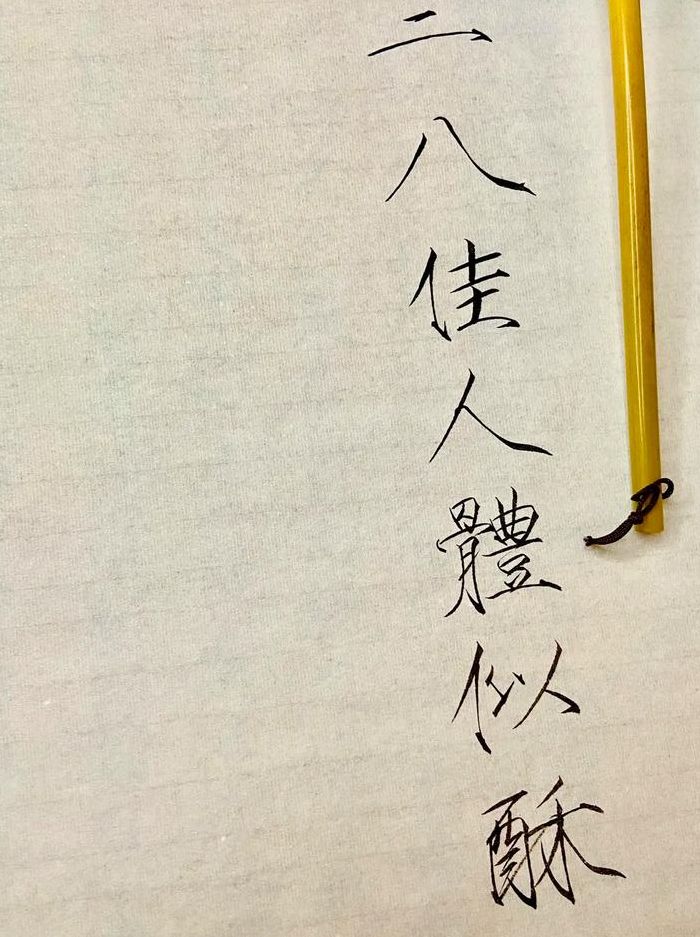 二八佳人體似酥